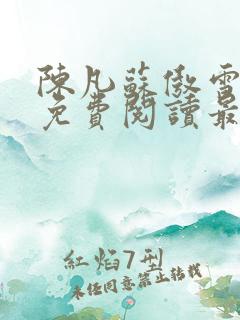 陳凡蘇傲雪
免費閱讀最
紅焰7型
未經同意禁止轉載